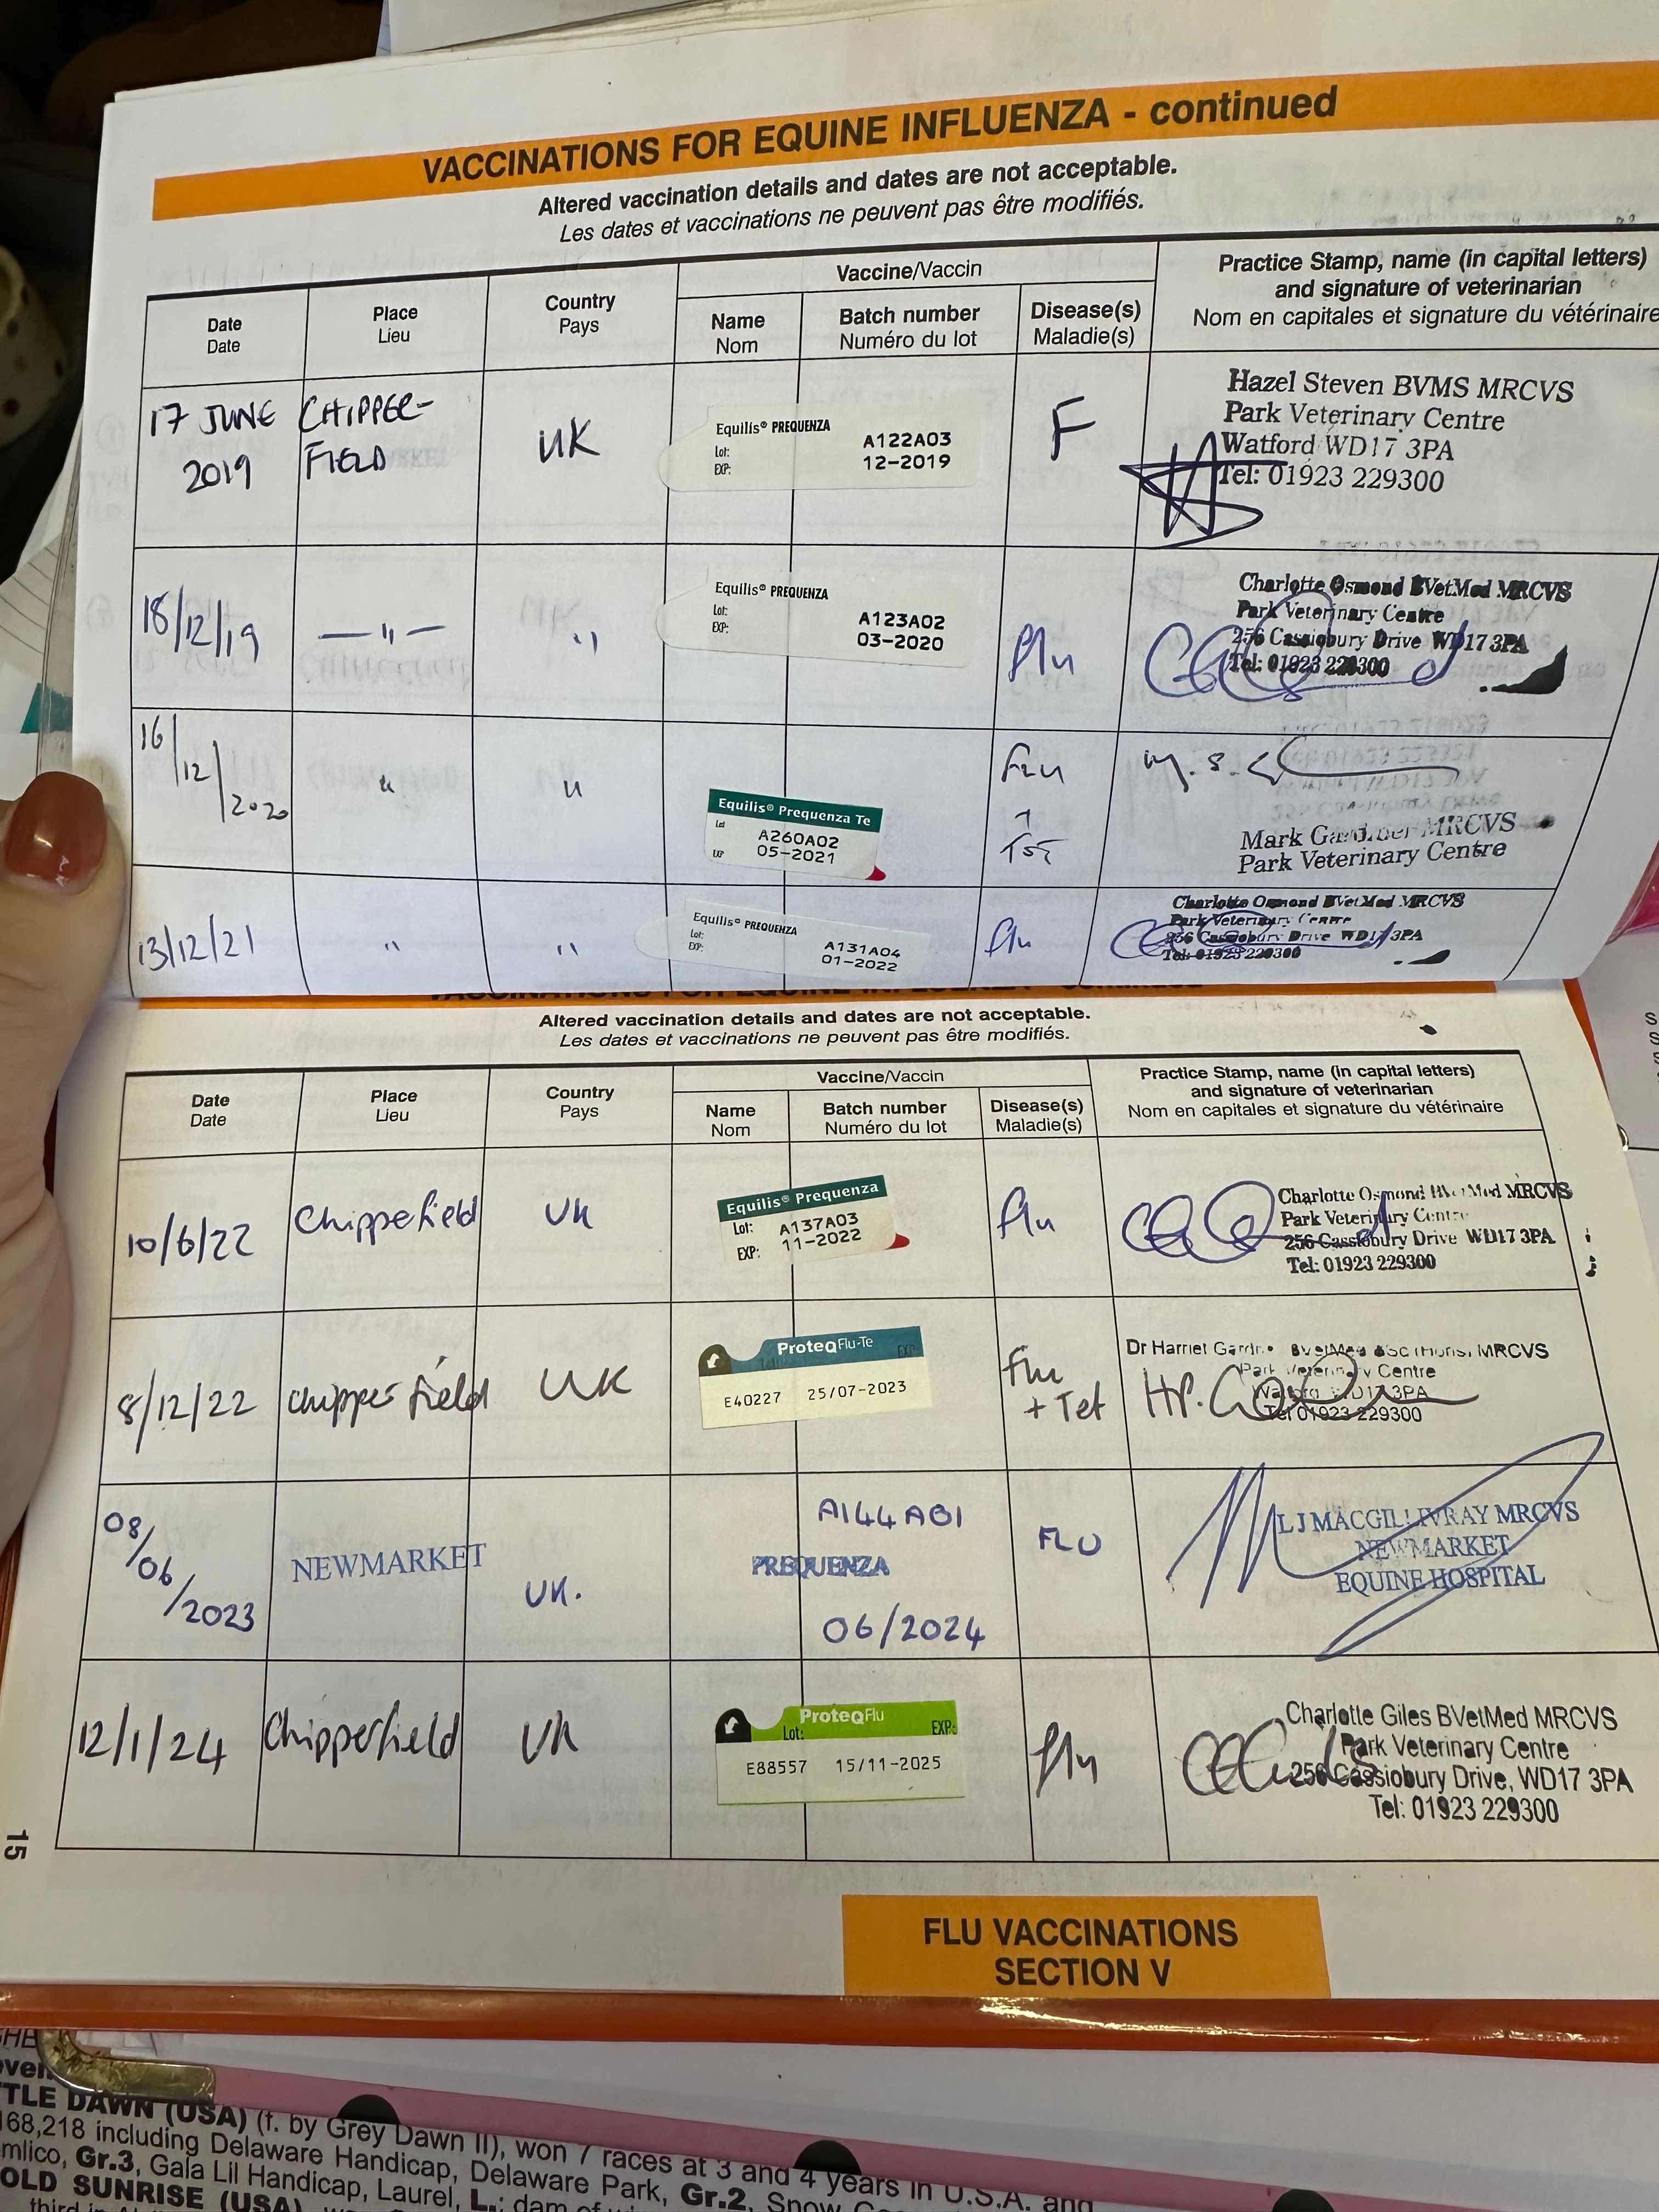 VACCINATIONS FOR EQUINE INFLUENZA - continued
Altered vaccination details and dates are not acceptable.
Les dates et vaccinations ne peuvent pas être modifiés.
Date
Date
Place
Lieu
Country
Pays
Vaccine/Vaccin
Name
Nom
Batch number
Numéro du lot
Disease(s)
Maladie(s)
Practice Stamp, name (in capital letters)
and signature of veterinarian
Nom en capitales et signature du vétérinaire
17 JUNE
2019
CHIPPER-
FIELD
UK
Equilis® PREQUENZA
Lot: A122A03
EXP: 12-2019
F
Hazel Steven BVMS MRCVS
Park Veterinary Centre
Watford WD17 3PA
Tel: 01923 229300
18/12/19
— " —
"
Equilis® PREQUENZA
Lot: A123A02
EXP: 03-2020
flu
Charlotte Osmond BVetMed MRCVS
Park Veterinary Centre
256 Cassiobury Drive WD17 3PA
Tel: 01923 229300
16/12/2020
"
"
Equilis® Prequenza Te
Lot A260A02
EXP 05-2021
Flu
+
Tet
Mark Gardiner MRCVS
Park Veterinary Centre
13/12/21
"
"
Equilis® PREQUENZA
Lot: A131A04
EXP: 01-2022
flu
Charlotte Osmond BVetMed MRCVS
Park Veterinary Centre
256 Cassiobury Drive WD17 3PA
Tel: 01923 229300
Altered vaccination details and dates are not acceptable.
Les dates et vaccinations ne peuvent pas être modifiés.
Date
Date
Place
Lieu
Country
Pays
Vaccine/Vaccin
Name
Nom
Batch number
Numéro du lot
Disease(s)
Maladie(s)
Practice Stamp, name (in capital letters)
and signature of veterinarian
Nom en capitales et signature du vétérinaire
10/6/22
Chipperfield
UK
Equilis® Prequenza
Lot: A137A03
EXP: 11-2022
flu
Charlotte Osmond BVetMed MRCVS
Park Veterinary Centre
256 Cassiobury Drive WD17 3PA
Tel: 01923 229300
8/12/22
Chipperfield
UK
ProteqFlu-Te
Lot: EXP:
E40227 25/07-2023
Flu
+ Tet
Dr Harriet BVetMed BSc (Hons) MRCVS
Park Veterinary Centre
Watford WD17 3PA
Tel 01923 229300
08/06/2023
NEWMARKET
UK.
PREQUENZA
A144AB1
06/2024
FLU
L J MACGILLIVRAY MRCVS
NEWMARKET
EQUINE HOSPITAL
12/1/24
Chipperfield
UK
ProteqFlu
Lot: EXP:
E88557 15/11-2025
flu
Charlotte Giles BVetMed MRCVS
Park Veterinary Centre
256 Cassiobury Drive, WD17 3PA
Tel: 01923 229300
15
FLU VACCINATIONS
SECTION V
TTLE DAWN (USA) (f. by Grey Dawn II), won 7 races at 3 and 4 years in U.S.A. and
168,218 including Delaware Handicap, Delaware Park, Gr.2, Snow
mlico, Gr.3, Gala Lil Handicap, Laurel, L.; dam of
OLD SUNRISE (USA)
third in